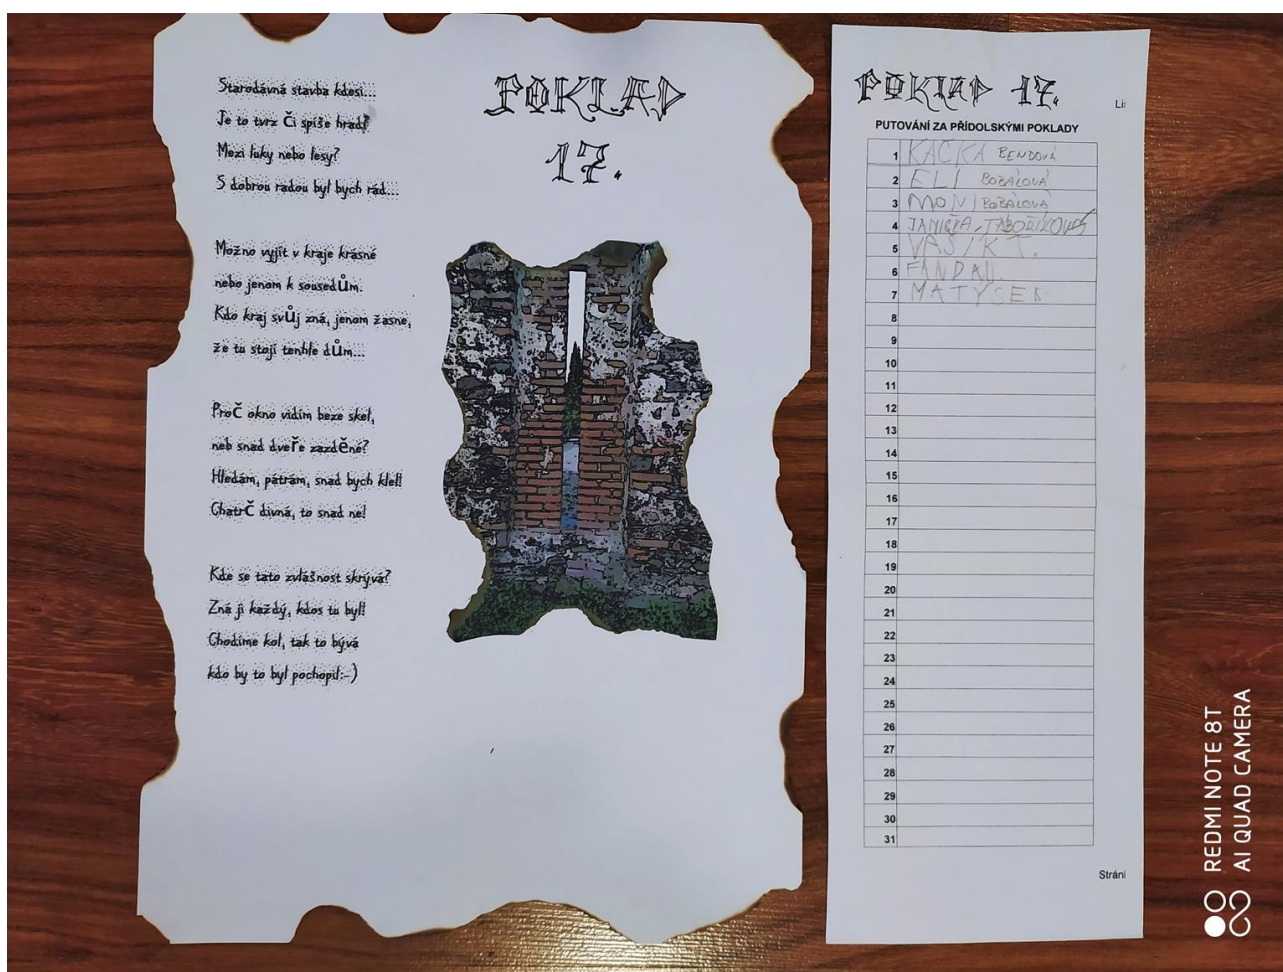 Starodávná stavba kdesi...
Je to tvrz Či spíše hrad?
Mezi luky nebo lesy?
S dobrou radou byl bych rád...
Možno vyjít v kraje krásné
nebo jenom k sousedŮm.
Kdo kraj svŮj zná, jenom žasne,
že tu stojí tenhle dŮm...
ProČ okno vidím beze skel,
neb snad dveŘe zazdĚné?
Hledám, pátrám, snad bych klel!
ChatrČ divná, to snad ne!
Kde se tato zvlášnost skrývá?
Zná ji každý, kdos tu byl!
Chodíme kol, tak to bývá
kdo by to byl pochopil:-)
POKLAD
17.
POKLAD 17.
Li
PUTOVÁNÍ ZA PŘÍDOLSKÝMI POKLADY
1 KAČKA BENDOVÁ
2 ELI BOBÁLOVÁ
3 MONI BOBÁLOVÁ
4 JANIČKA TÁBOŘÍKOVÁ
5 VAŠÍK T.
6
7 MATÝSEK
8
9
10
11
12
13
14
15
16
17
18
19
20
21
22
23
24
25
26
27
28
29
30
31
Strání
REDMI NOTE 8T
AI QUAD CAMERA